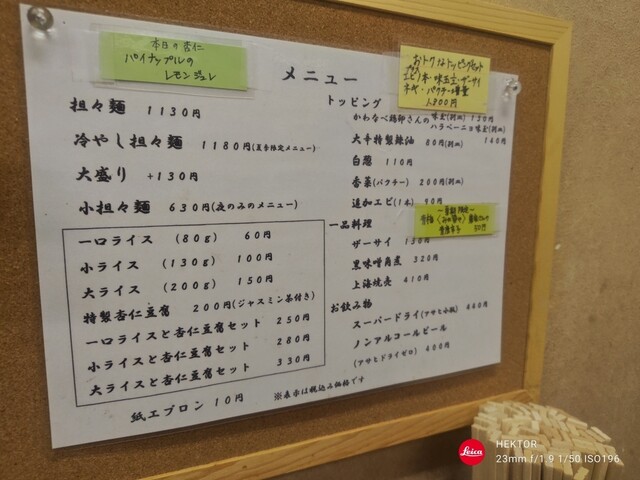 本日の杏仁
パイナップルの
レモンジュレ
メニュー
担々麺 1130円
冷やし担々麺 1180円(夏季限定メニュー)
大盛り +130円
小担々麺 630円(夜のみのメニュー)
一口ライス (80g) 60円
小ライス (130g) 100円
大ライス (200g) 150円
特製杏仁豆腐 200円(ジャスミン茶付き)
一口ライスと杏仁豆腐セット 250円
小ライスと杏仁豆腐セット 280円
大ライスと杏仁豆腐セット 330円
紙エプロン 10円
※表示は税込み価格です
おトクなトッピングセット
エビ1本・味玉・ザーサイ
ネギ・パクチー増量
トッピング
かわなべ鶏卵さんの 味玉(別皿) 130円
ハラペーニョ味玉(別皿) 140円
大辛特製辣油 80円(別皿)
白髪 110円
香菜(パクチー) 200円(別皿)
追加エビ(1本) 90円
一品料理
ザーサイ 130円
黒味噌角煮 320円
上海焼売 410円
お飲み物
スーパードライ(アサヒ小瓶) 440円
ノンアルコールビール
(アサヒドライゼロ) 400円
Leica
HEKTOR
23mm f/1.9 1/50 ISO196